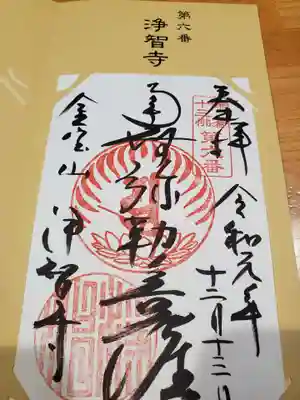 第六番
浄智寺
奉拝
令和元年
十二月十二日
十三佛
第六番
弥勒菩薩
金宝山
浄智寺